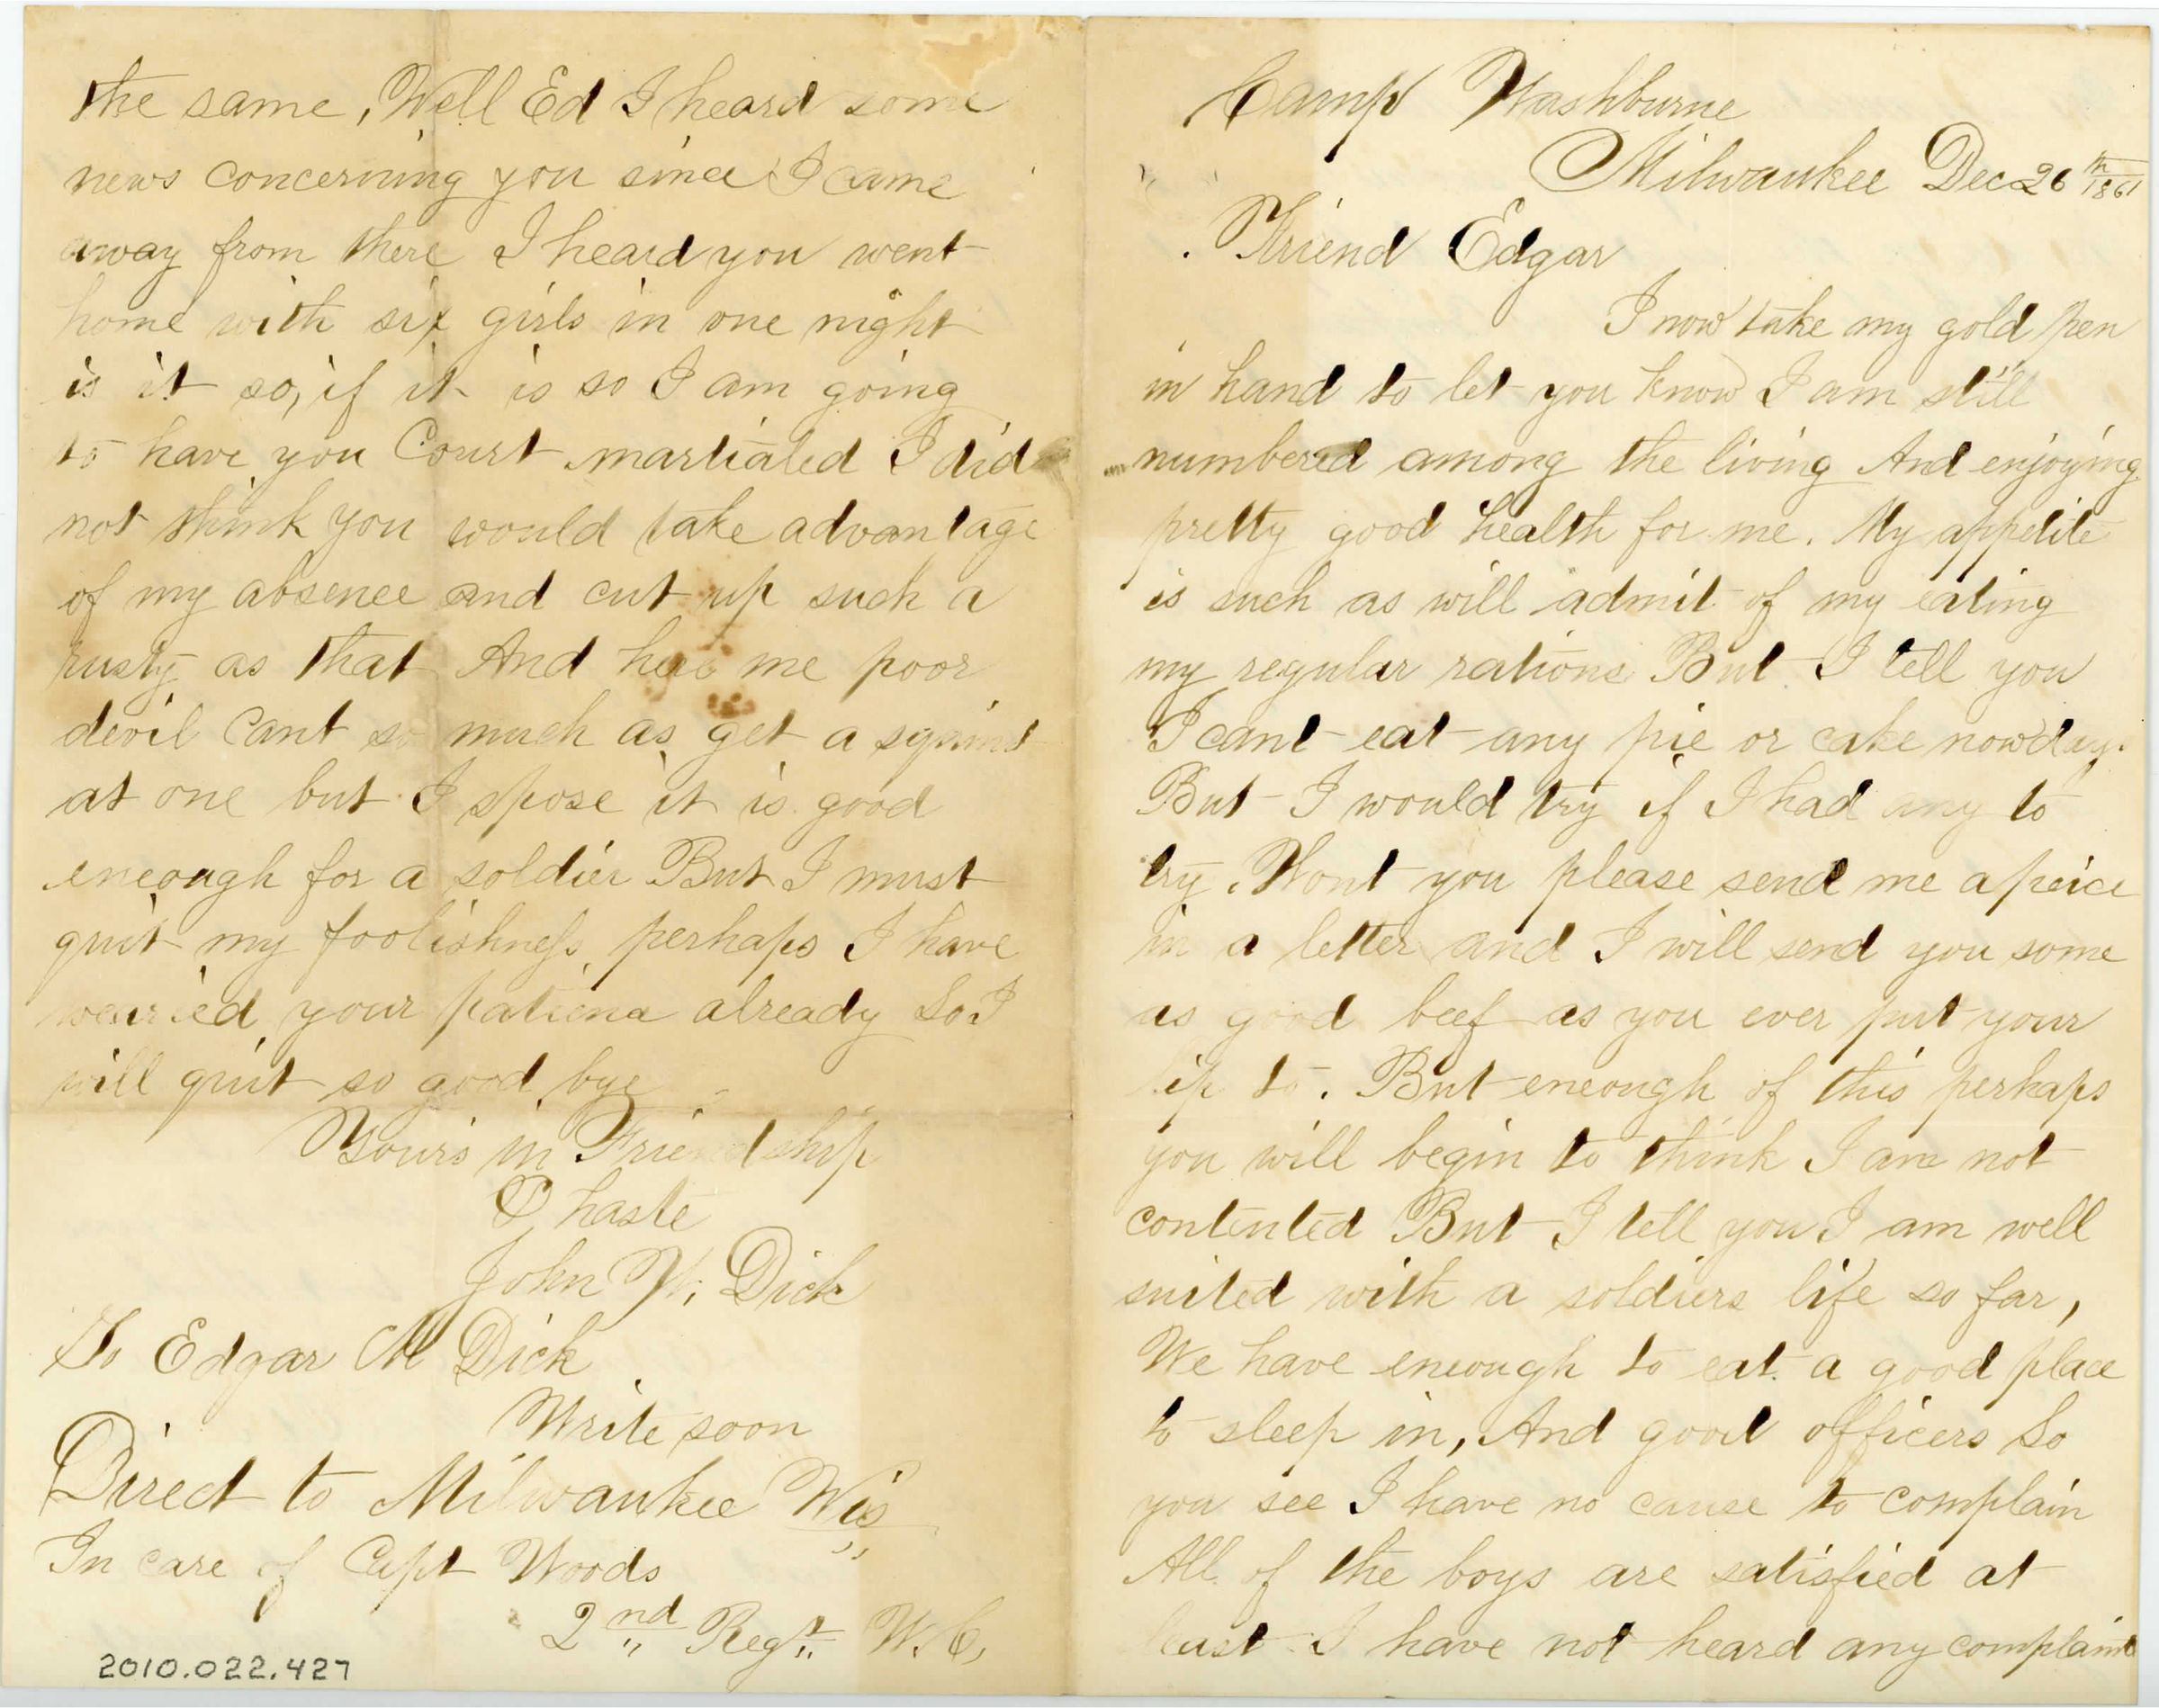 Camp Washburne
Milwaukee Dec 26th 1861
Friend Edgar
I now take my gold pen
in hand to let you know I am still
numbered among the living And enjoying
pretty good health for me. My appetite
is such as will admit of my eating
my regular rations But I tell you
I cant eat any pie or cake nowdays.
But I would try if I had any to
try. Wont you please send me a peice
in a letter and I will send you some
as good beef as you ever put your
lip to. But eneough of this perhaps
you will begin to think I am not
contented But I tell you I am well
suited with a soldiers life so far,
We have eneough to eat. a good place
to sleep in, And good officers So
you see I have no cause to complain
All of the boys are satisfied at
least I have not heard any complaint
the same, Well Ed I heard some
news concerning you since I came
away from there I heard you went
home with six girls in one night
is it so, if it is so I am going
to have you Court martialed I did
not think you would take advantage
of my absence and cut up such a
rusty as that And here me poor
devil cant so much as get a squint
at one but I spose it is good
eneough for a soldier But I must
quit my foolishness, perhaps I have
wearied your patience already So I
will quit so good bye
Yours in Friendship
P haste
John W. Dick
To Edgar M Dick
Write soon
Direct to Milwaukee Wis
In care of Capt Woods
2nd Regt. W. C,
2010.022.427